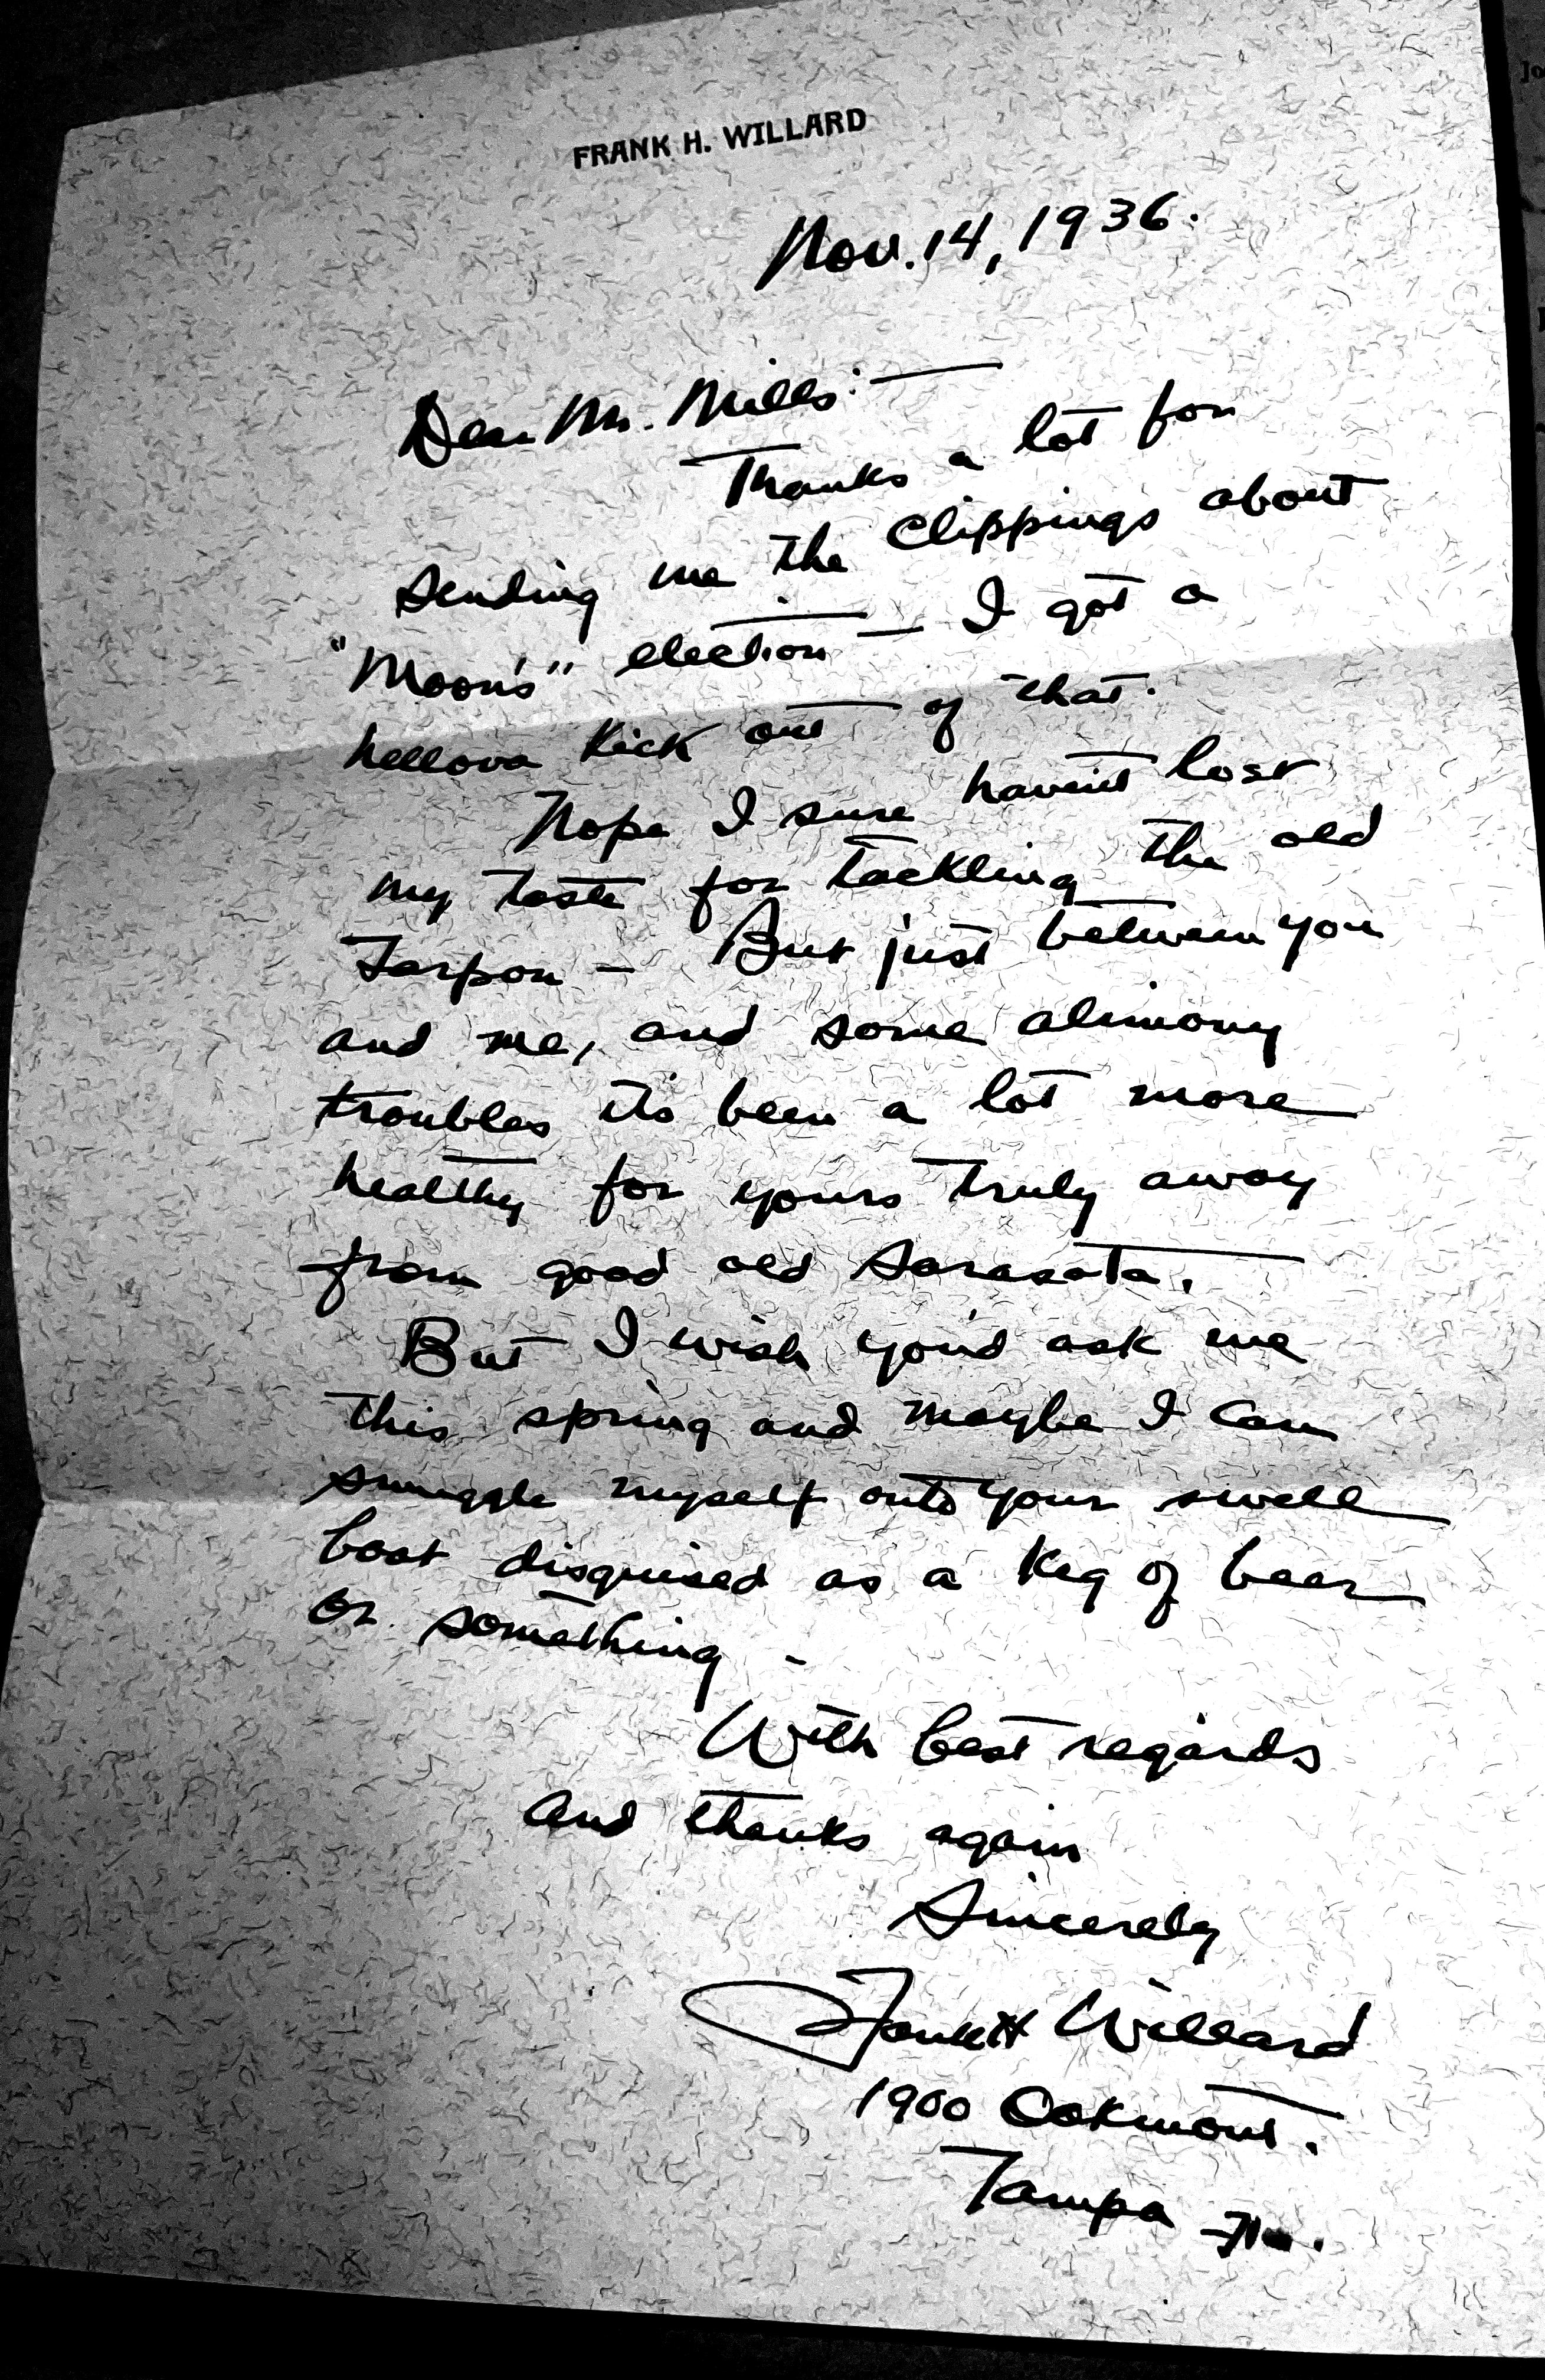 FRANK H. WILLARD
Nov. 14, 1936.
Dear Mr. Mills:—
Thanks a lot for
sending me the clippings about
"Moon's" election — I got a
hellova kick out of that.
Nope I sure haven't lost
my taste for tackling the old
Tarpon — But just between you
and me, and some alimony
troubles it's been a lot more
healthy for yours truly away
from good old Sarasota.
But I wish you'd ask me
this spring and maybe I can
smuggle myself onto your swell
boat disguised as a keg of beer
or something –
With best regards
and thanks again
Sincerely
Frank H Willard
1900 Oakmont.
Tampa Fla.